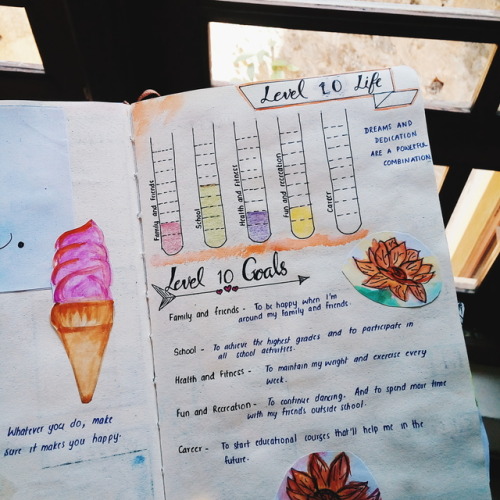 Whatever you do, make
sure it makes you happy.
Level 10 Life
DREAMS AND
DEDICATION
ARE A POWERFUL
COMBINATION
Family and friends
School
Health and fitness
Fun and recreation
Career
Level 10 Goals
Family and friends - To be happy when I'm
around my family and friends.
School - To achieve the highest grades and to participate in
all school activities.
Health and Fitness - To maintain my weight and exercise every
week.
Fun and Recreation - To continue dancing. And to spend more time
with my friends outside school.
Career - To start educational courses that'll help me in the
future.